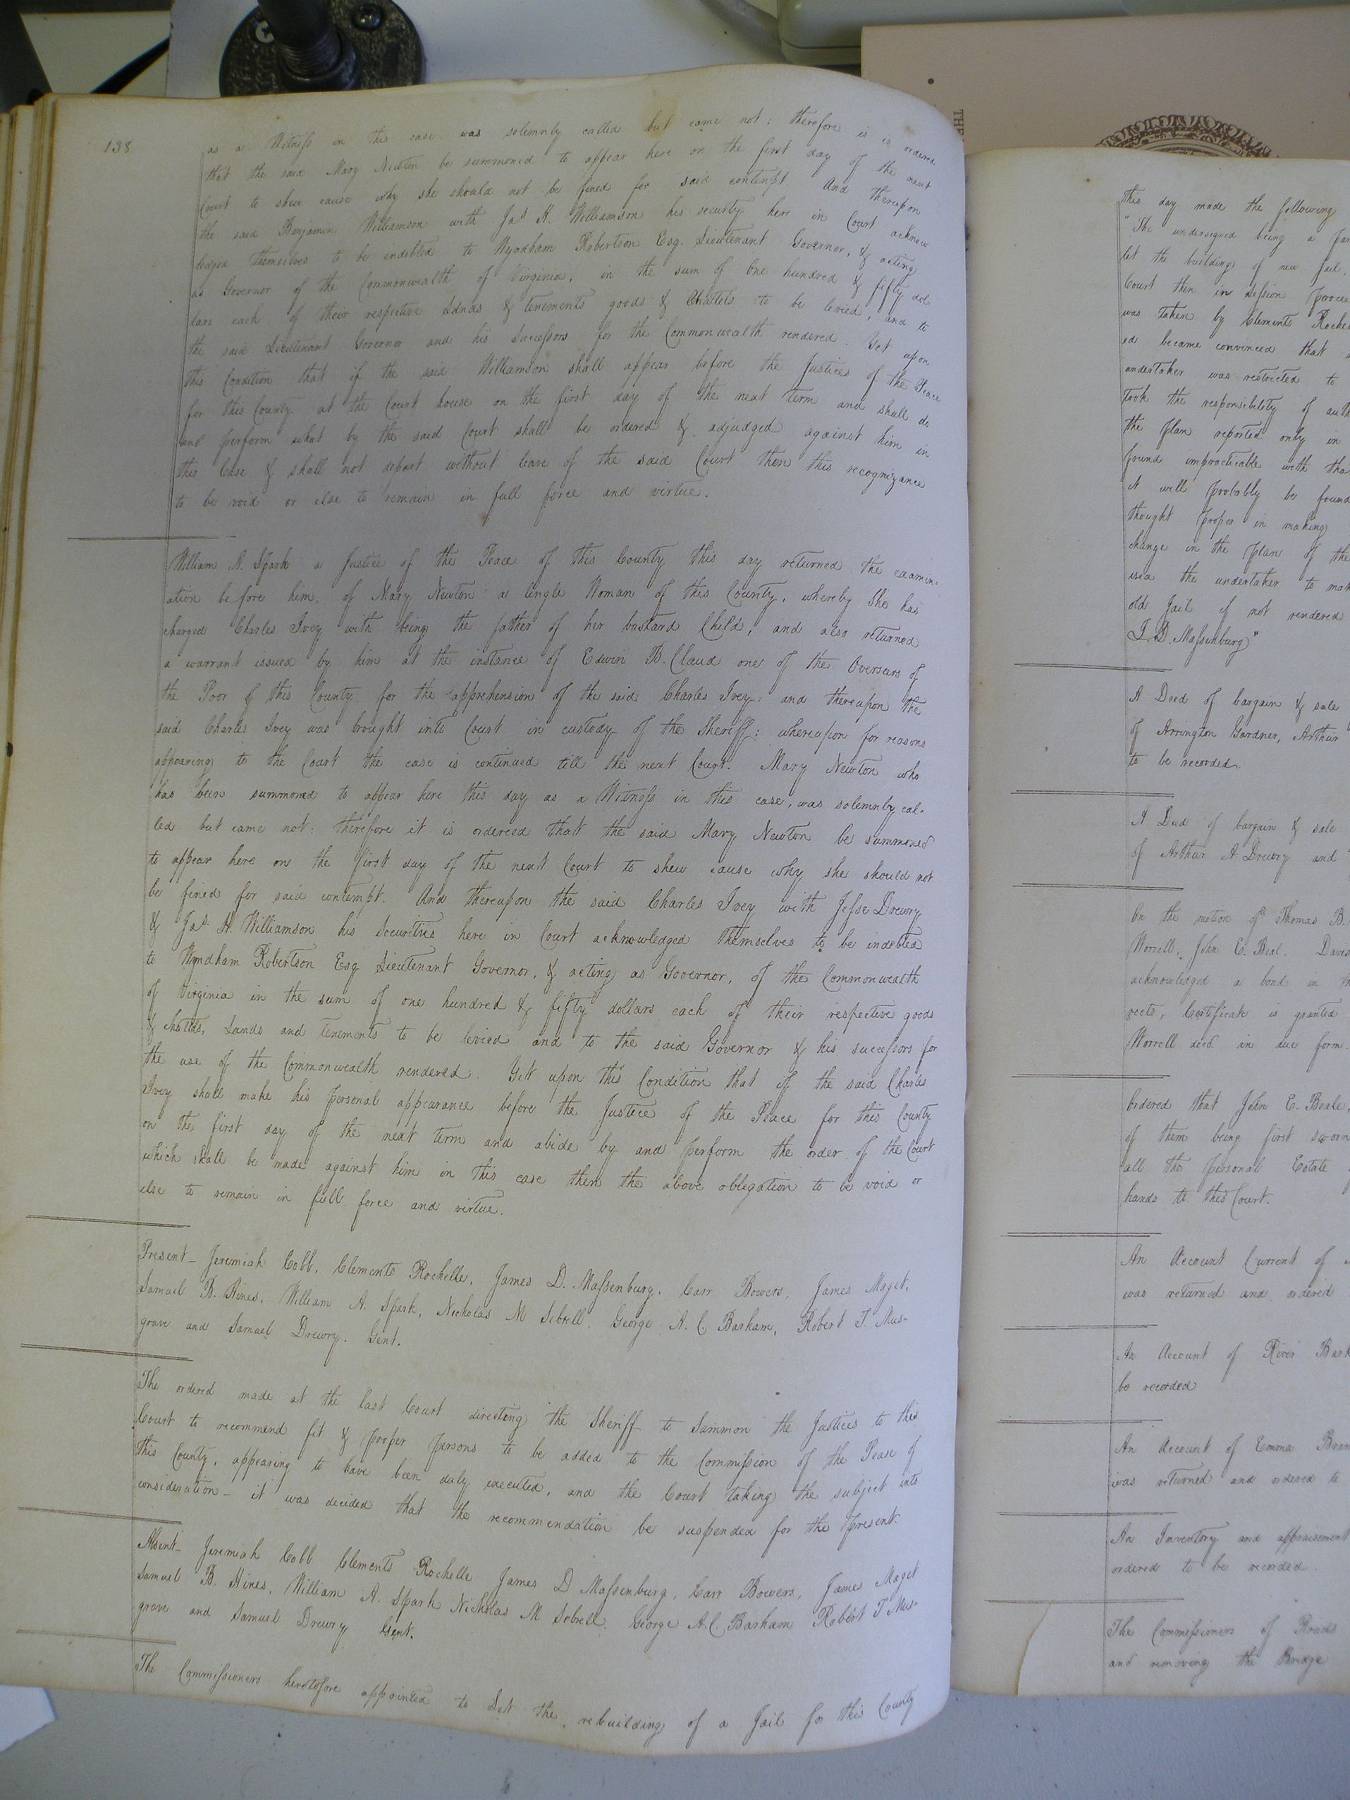 138
as a Witness in this case was solemnly called but came not: therefore is is ordered
that the said Mary Newton be summoned to appear here on the first day of the next
Court to shew cause why she should not be fined for said contempt. And thereupon
the said Benjamin Williamson with Jas. H. Williamson his security here in Court acknow
ledged themselves to be indebted to Wyndham Robertson Esq. Lieutenant Governor, & acting
as Governor of the Commonwealth of Virginia, in the sum of one hundred & fifty dol
lars each of their respective Lands & tenements goods & Chattels to be levied, and to
the said Lieutenant Governor and his Successors for the Commonwealth rendered. Yet upon
this Condition that if the said Williamson shall appear before the Justices of the Peace
for this County at the Court house on the first day of the next term and shall do
and perform what by the said Court shall be ordered & adjudged against him in
this Case & shall not depart without leave of the said Court then this recognizance
to be void or else to remain in full force and virtue.
William A. Spark a Justice of the Peace of this County this day returned the examin-
ation before him, of Mary Newton a single Woman of this County, whereby She has
charged Charles Ivey with being the father of her bastard Child, and also returned
a warrant issued by him at the instance of Edwin B. Claud one of the Overseers of
the Poor of this County for the apprehension of the said Charles Ivey: and thereupon the
said Charles Ivey was brought into Court in custody of the Sheriff: whereupon for reasons
appearing to the Court the case is continued till the next Court. Mary Newton who
has been summoned to appear here this day as a Witness in this case, was solemnly cal-
led but came not: therefore it is ordered that the said Mary Newton be summoned
to appear here on the first day of the next Court to shew cause why she should not
be fined for said contempt. And thereupon the said Charles Ivey with Jesse Drewry
& Jas. H. Williamson his securities here in Court acknowledged themselves to be indebted
to Wyndham Robertson Esq Lieutenant Governor, & acting as Governor, of the Commonwealth
of Virginia in the sum of one hundred & fifty dollars each of their respective goods
& chattles, Lands and tenements to be levied and to the said Governor & his successors for
the use of the Commonwealth rendered. Yet upon this Condition that if the said Charles
Ivey shall make his personal appearance before the Justice of the Peace for this County
on the first day of the next term and abide by and perform the order of the Court
which shall be made against him in this case then the above obligation to be void or
else to remain in full force and virtue.
Present- Jeremiah Cobb, Clements Rochelle, James D. Massenburg, Carr Bowers, James Maget,
Samuel B. Hines, William A. Spark, Nicholas M Sebrell, George A. C Barham, Robert T. Mus-
grave and Samuel Drewry. Gent.
The ordered made at the last Court directing the Sheriff to Summon the Justices to this
Court to recommend fit & proper persons to be added to the Commission of the Peace of
this County, appearing to have been duly executed, and the Court taking the subject into
consideration- it was decided that the recommendation be suspended for the present.
Absent- Jeremiah Cobb Clements Rochelle James D Massenburg, Carr Bowers, James Maget
Samuel B. Hines, William A. Spark Nicholas M Sebrell, George A. C. Barham Robert T Mus-
grave and Samuel Drewry Gent.
The Commissioners heretofore appointed to Let the rebuilding of a Jail for this County
this day made the following
"The undersigned being a
let the building of new Jail,
Court then in session
was taken by Clements
ed became convinced that
undertaker was restricted to
took the responsibility of
the plan reported only in
found impracticable with
it will probably be found
thought proper in making
change in the plan of the
the undertaker to
old Jail if not rendered
J. D Massenburg"
A Deed of bargain & sale
of Arrington Gardner, Arthur
to be recorded.
A Deed of bargain & sale
of Arthur A Drewry and
On the motion of Thomas B.
Worrell, John E. Beal,
acknowledged a bond in
rects, Certificate is granted
Worrell decd in due form.
Ordered that John E. Beale,
of them being first sworn
all the personal Estate
hands to this Court.
An Account Current of
was returned and ordered
An Account of River
be recorded
An Account of Emma
was returned and ordered to
An Inventory and appraisement
ordered to be recorded.
The Commissioners of Roads
and removing the Bridge